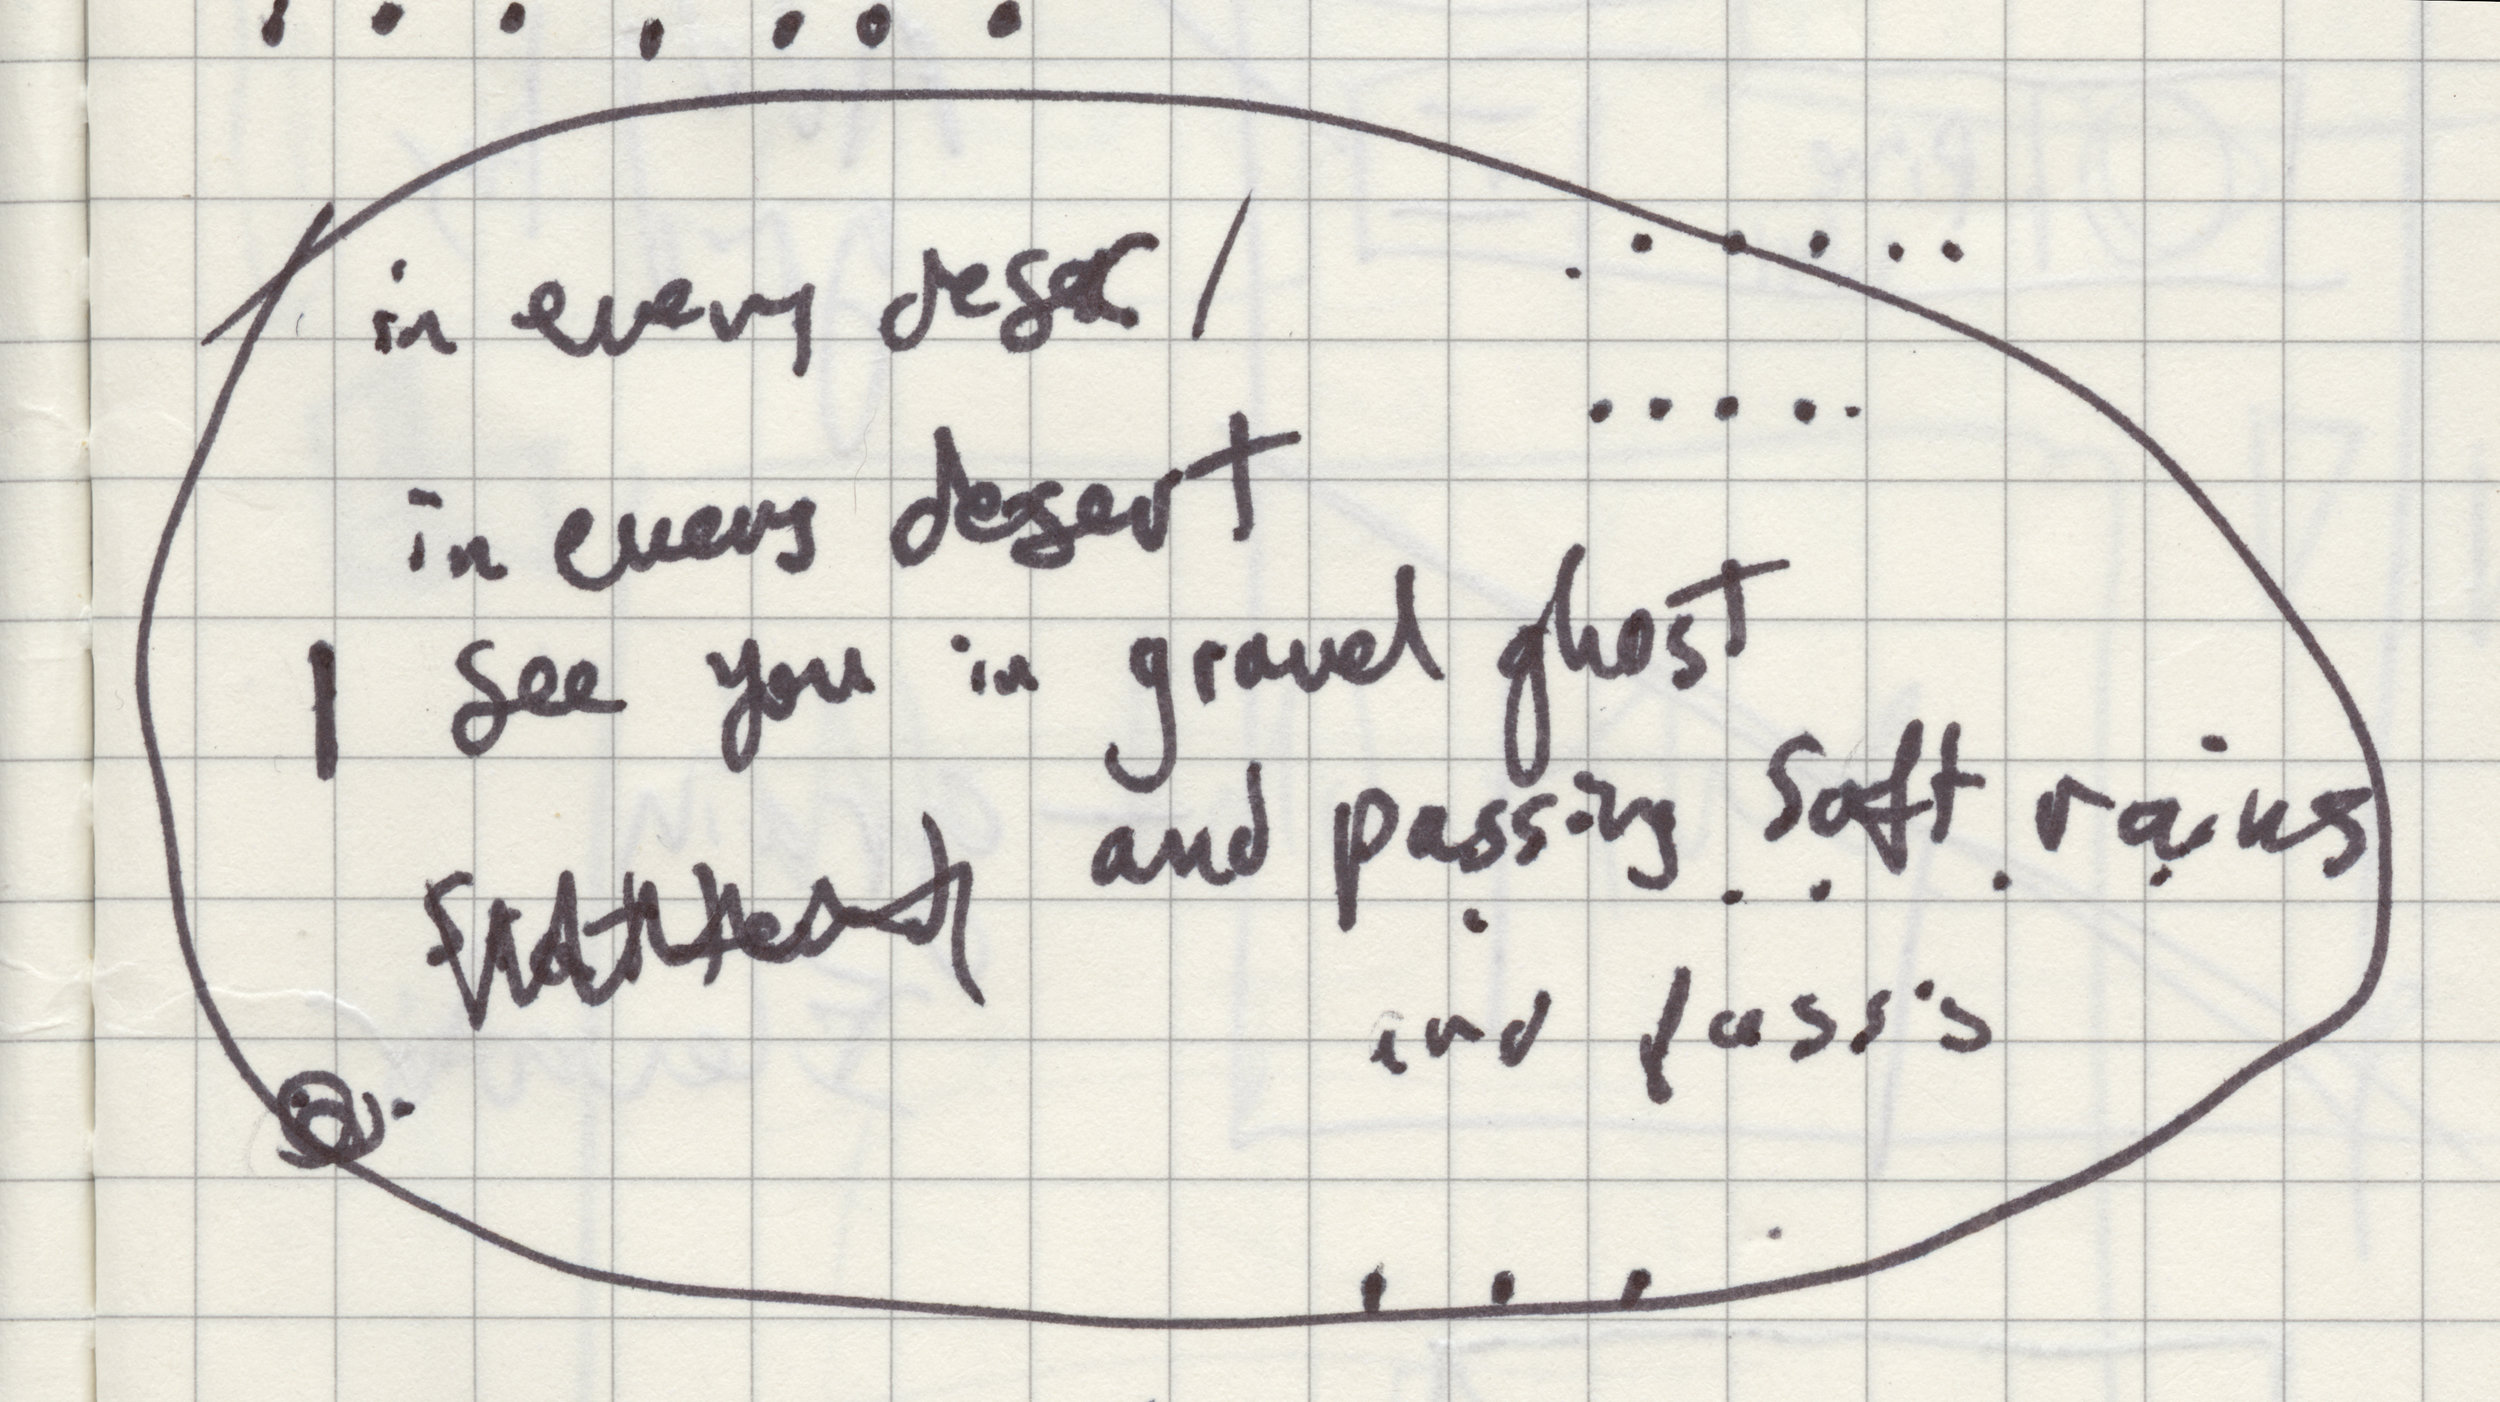 in every deser/
in every desert
I see you in gravel ghost
and passing soft rains